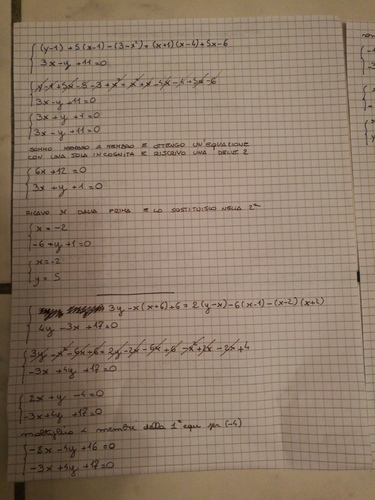 (y-1)+5(x-1)-(3-x²)=(x+1)(x-4)+5x-6
3x-y+11=0
y-1+5x-5-3+x²=x²+x-4x-4+5x-6
3x-y+11=0
3x+y+1=0
3x-y+11=0
SOMMO MEMBRO A MEMBRO E OTTENGO UN'EQUAZIONE
CON UNA SOLA INCOGNITA E RISCRIVO UNA DELLE 2
6x+12=0
3x+y+1=0
RICAVO X DALLA PRIMA E LO SOSTITUISCO NELLA 2ª
x=-2
-6+y+1=0
x=-2
y=5
3y-x(x+6)+6=2(y-x)-6(x-1)-(x-2)(x+2)
4y-3x+17=0
3y-x²-6x+6=2y-2x-6x+6-x²+2x-2x+4
-3x+4y+17=0
2x+y-4=0
-3x+4y+17=0
moltiplico membro della 1ª equ per (-4)
-8x-4y+16=0
-3x+4y+17=0